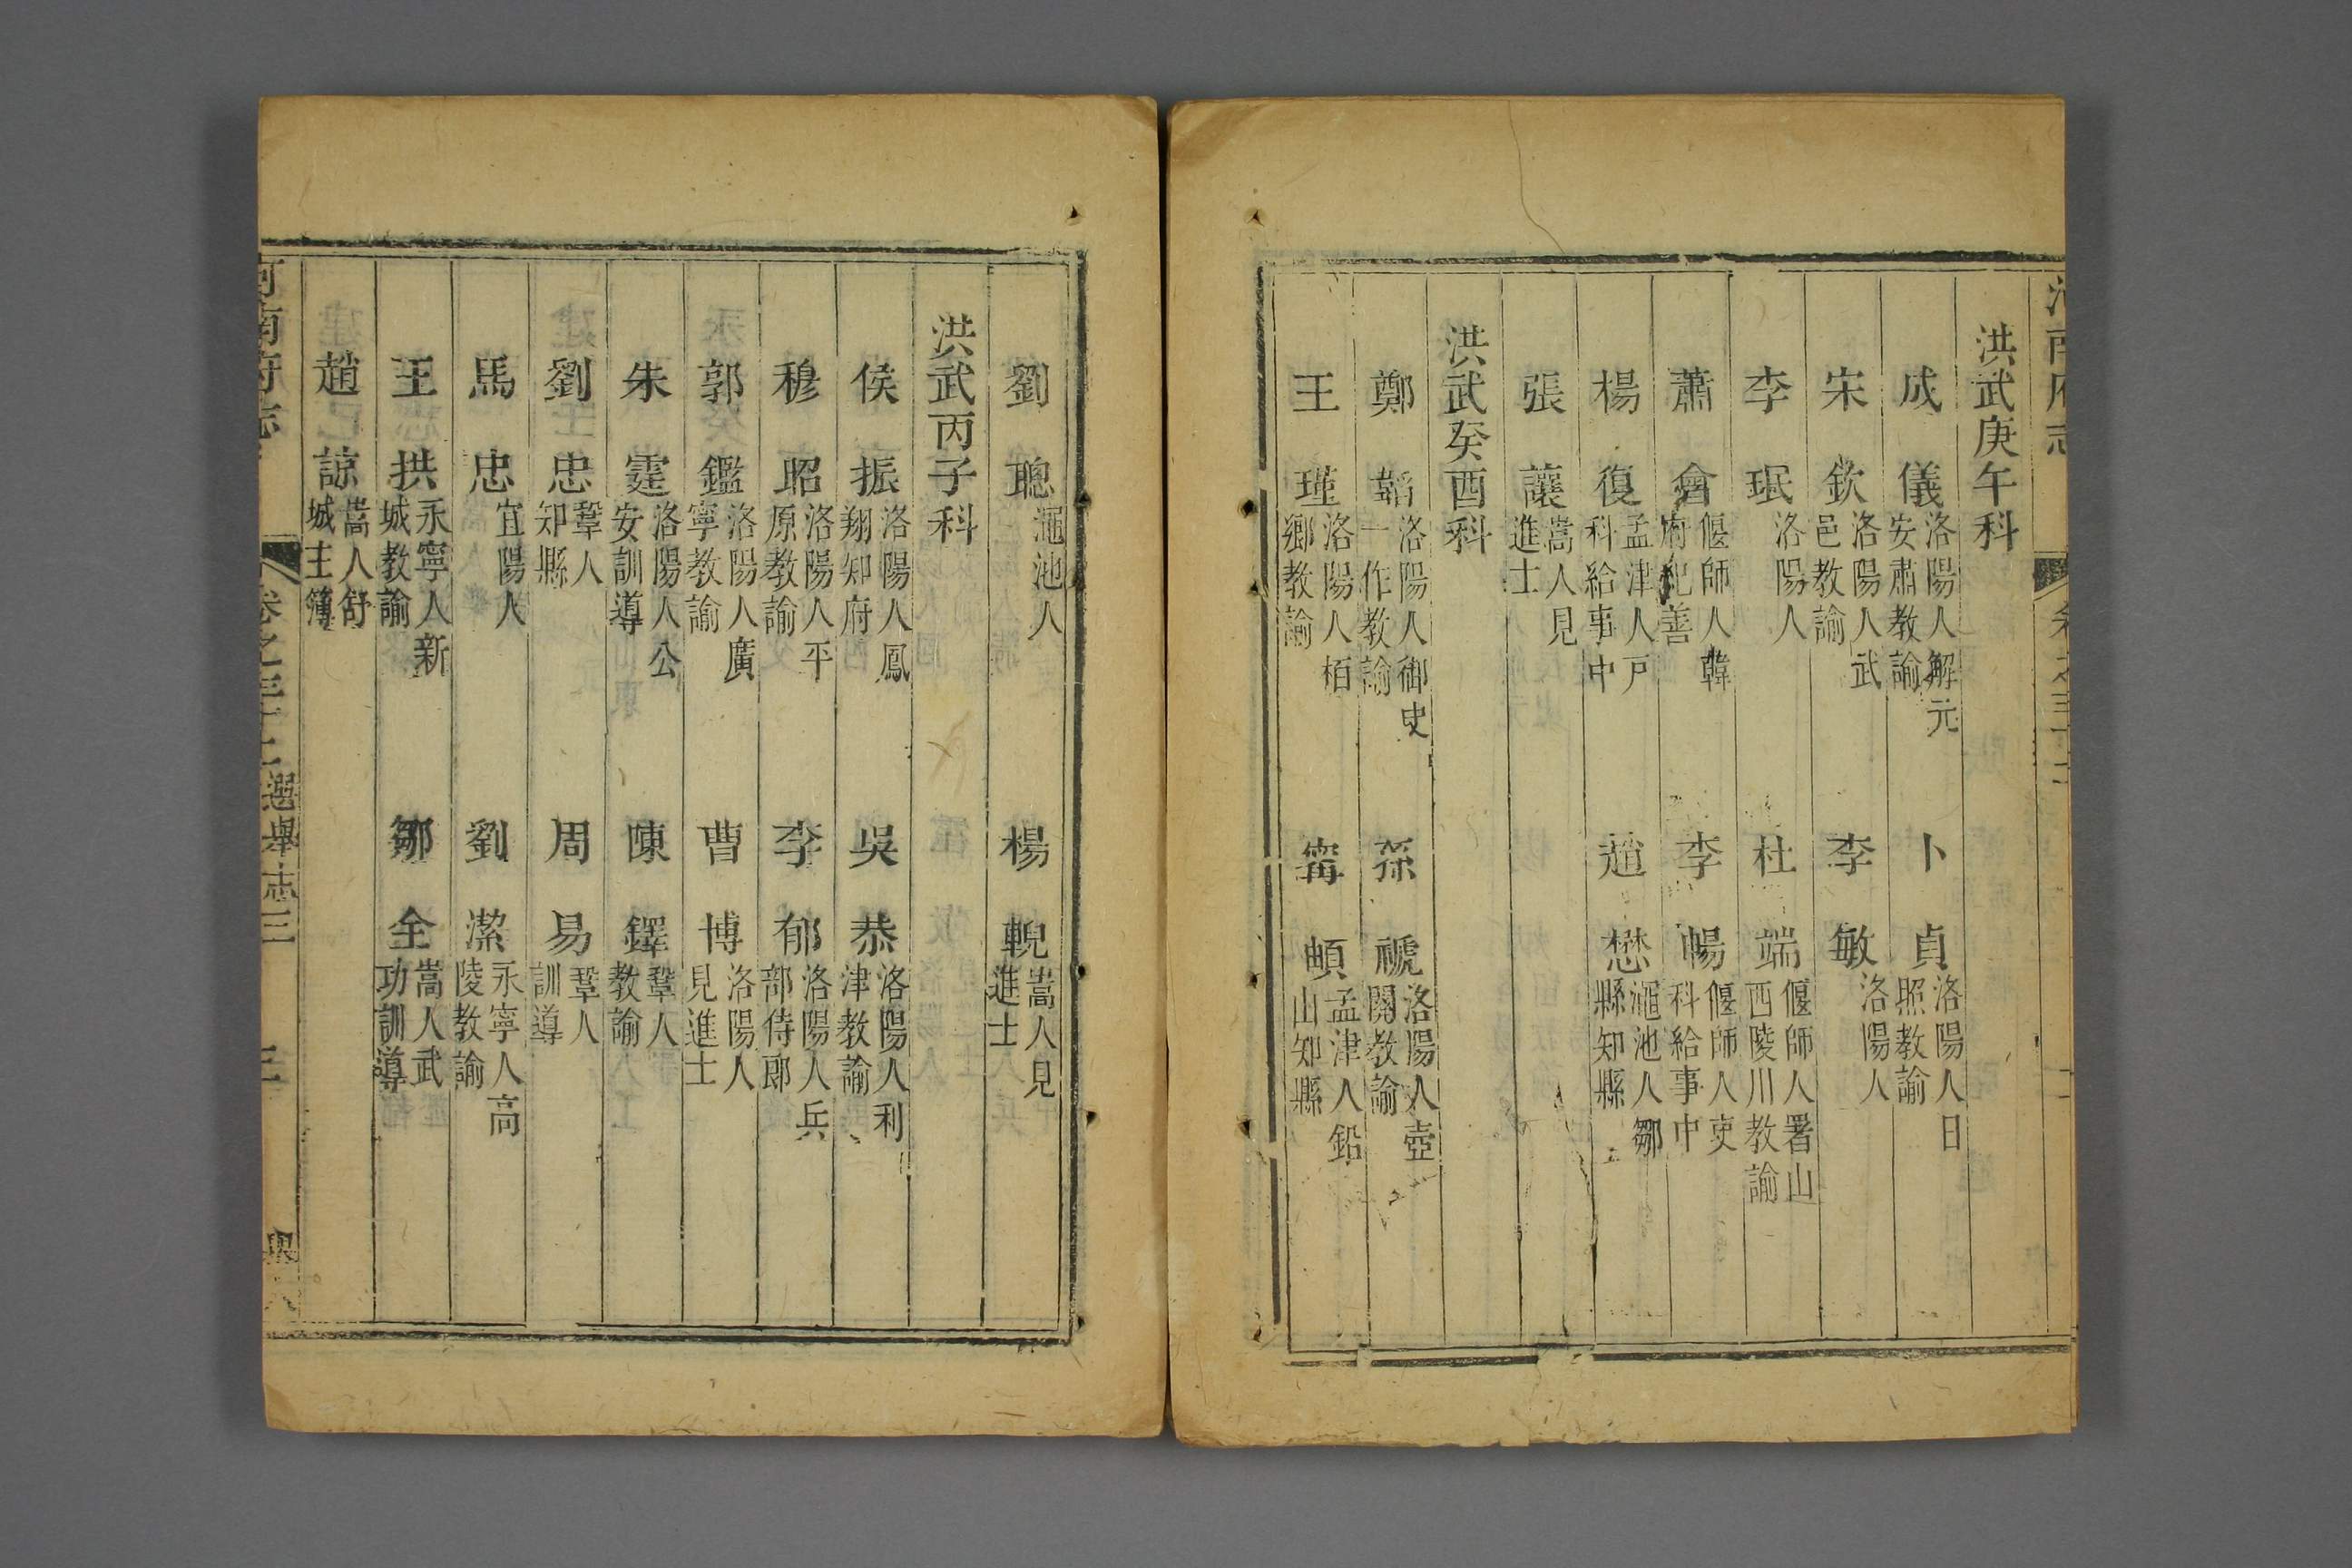 洪武庚午科
成儀 洛陽人解元安肅教諭 卜貞 洛陽人日照教諭
宋欽 洛陽人武邑教諭 李敏 洛陽人
李珉 洛陽人 杜端 偃師人署山西陵川教諭
蕭會 偃師人韓府紀善 李暢 偃師人吏科給事中
楊復 孟津人戸科給事中 趙懋 澠池人鄒縣知縣
張讓 嵩人見進士
洪武癸酉科
鄭韜 洛陽人御史一作教諭 孫禠 洛陽人壺關教諭
王瑾 洛陽人栢鄉教諭 甯㟲 孟津人鉛山知縣
劉聰 澠池人 楊輗 嵩人見進士
洪武丙子科
侯振 洛陽人鳳翔知府 吳恭 洛陽人利津教諭
穆昭 洛陽人平原教諭 李郁 洛陽人兵部侍郎
郭鑑 洛陽人廣寧教諭 曹博 洛陽人見進士
朱霆 洛陽人公安訓導 陳鐸 鞏人教諭
劉忠 鞏人知縣 周易 鞏人訓導
馬忠 宜陽人 劉潔 永寧人高陵教諭
王拱 永寧人新城教諭 鄒全 嵩人武功訓導
趙諒 嵩人舒城主簿
河南府志 卷之三十二 選舉志三 三